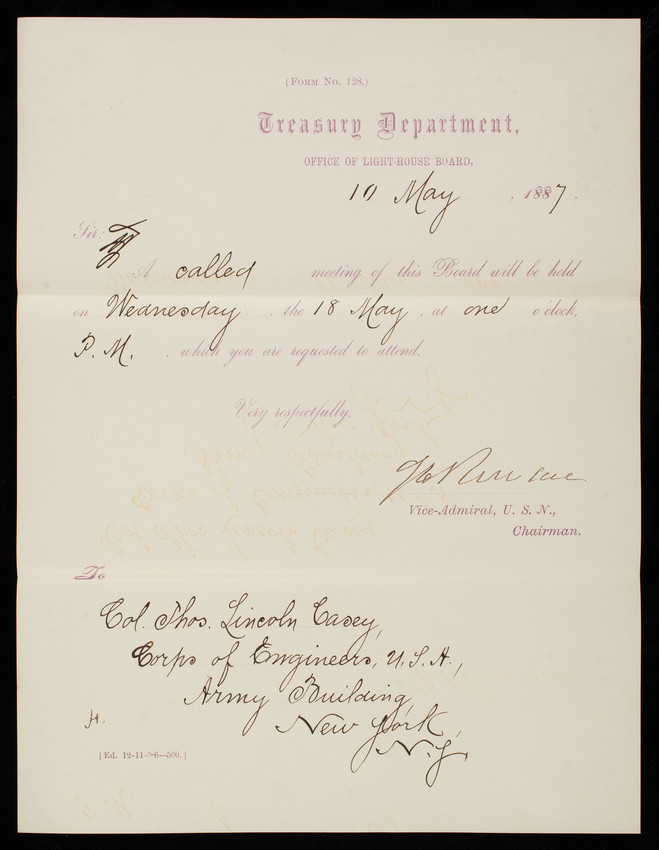 (Form No. 128.)
Treasury Department,
OFFICE OF LIGHT-HOUSE BOARD,
10 May , 1887.
Sir:
A called meeting of this Board will be held
on Wednesday, the 18 May, at one o'clock,
P. M. , which you are requested to attend.
Very respectfully,
Vice-Admiral, U. S. N.,
Chairman.
To
Col. Thos. Lincoln Casey,
Corps of Engineers, U.S.A.,
Army Building,
New York,
N.Y.
[Ed. 12-11-'86—500.]